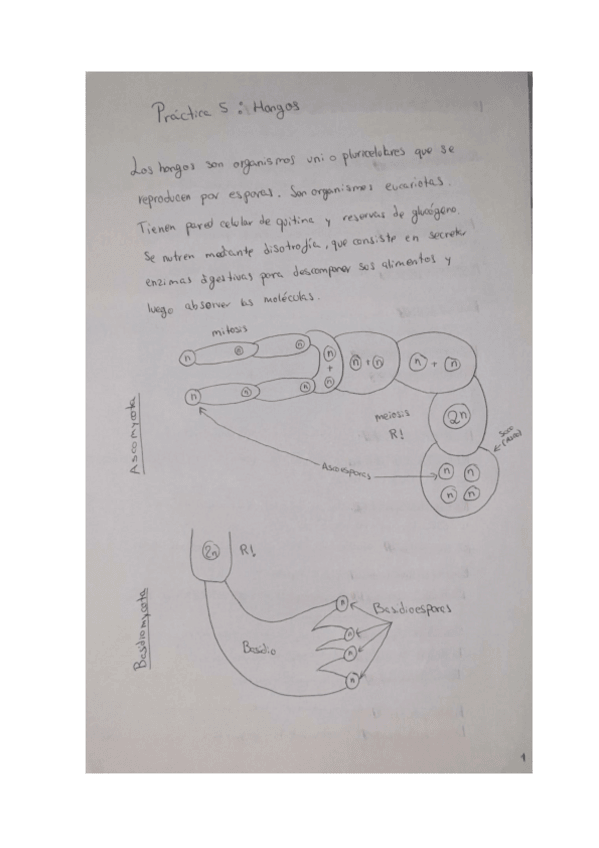 Práctica 5: Hongos
Los hongos son organismos uni o pluricelulares que se
reproducen por esporas. Son organismos eucariotas.
Tienen pared celular de quitina y reservas de glucógeno.
Se nutren mediante disotrofia, que consiste en secretar
enzimas digestivas para descomponer sus alimentos y
luego absorver las moléculas.
mitosis
n n n n + n n + n n + n
n n n
2n
meiosis
R!
Saco
Ascoesporas
n n
n n
Ascomycota
2n R!
Basidio
n
n
n
n
Basidioesporas
Basidiomycota
1